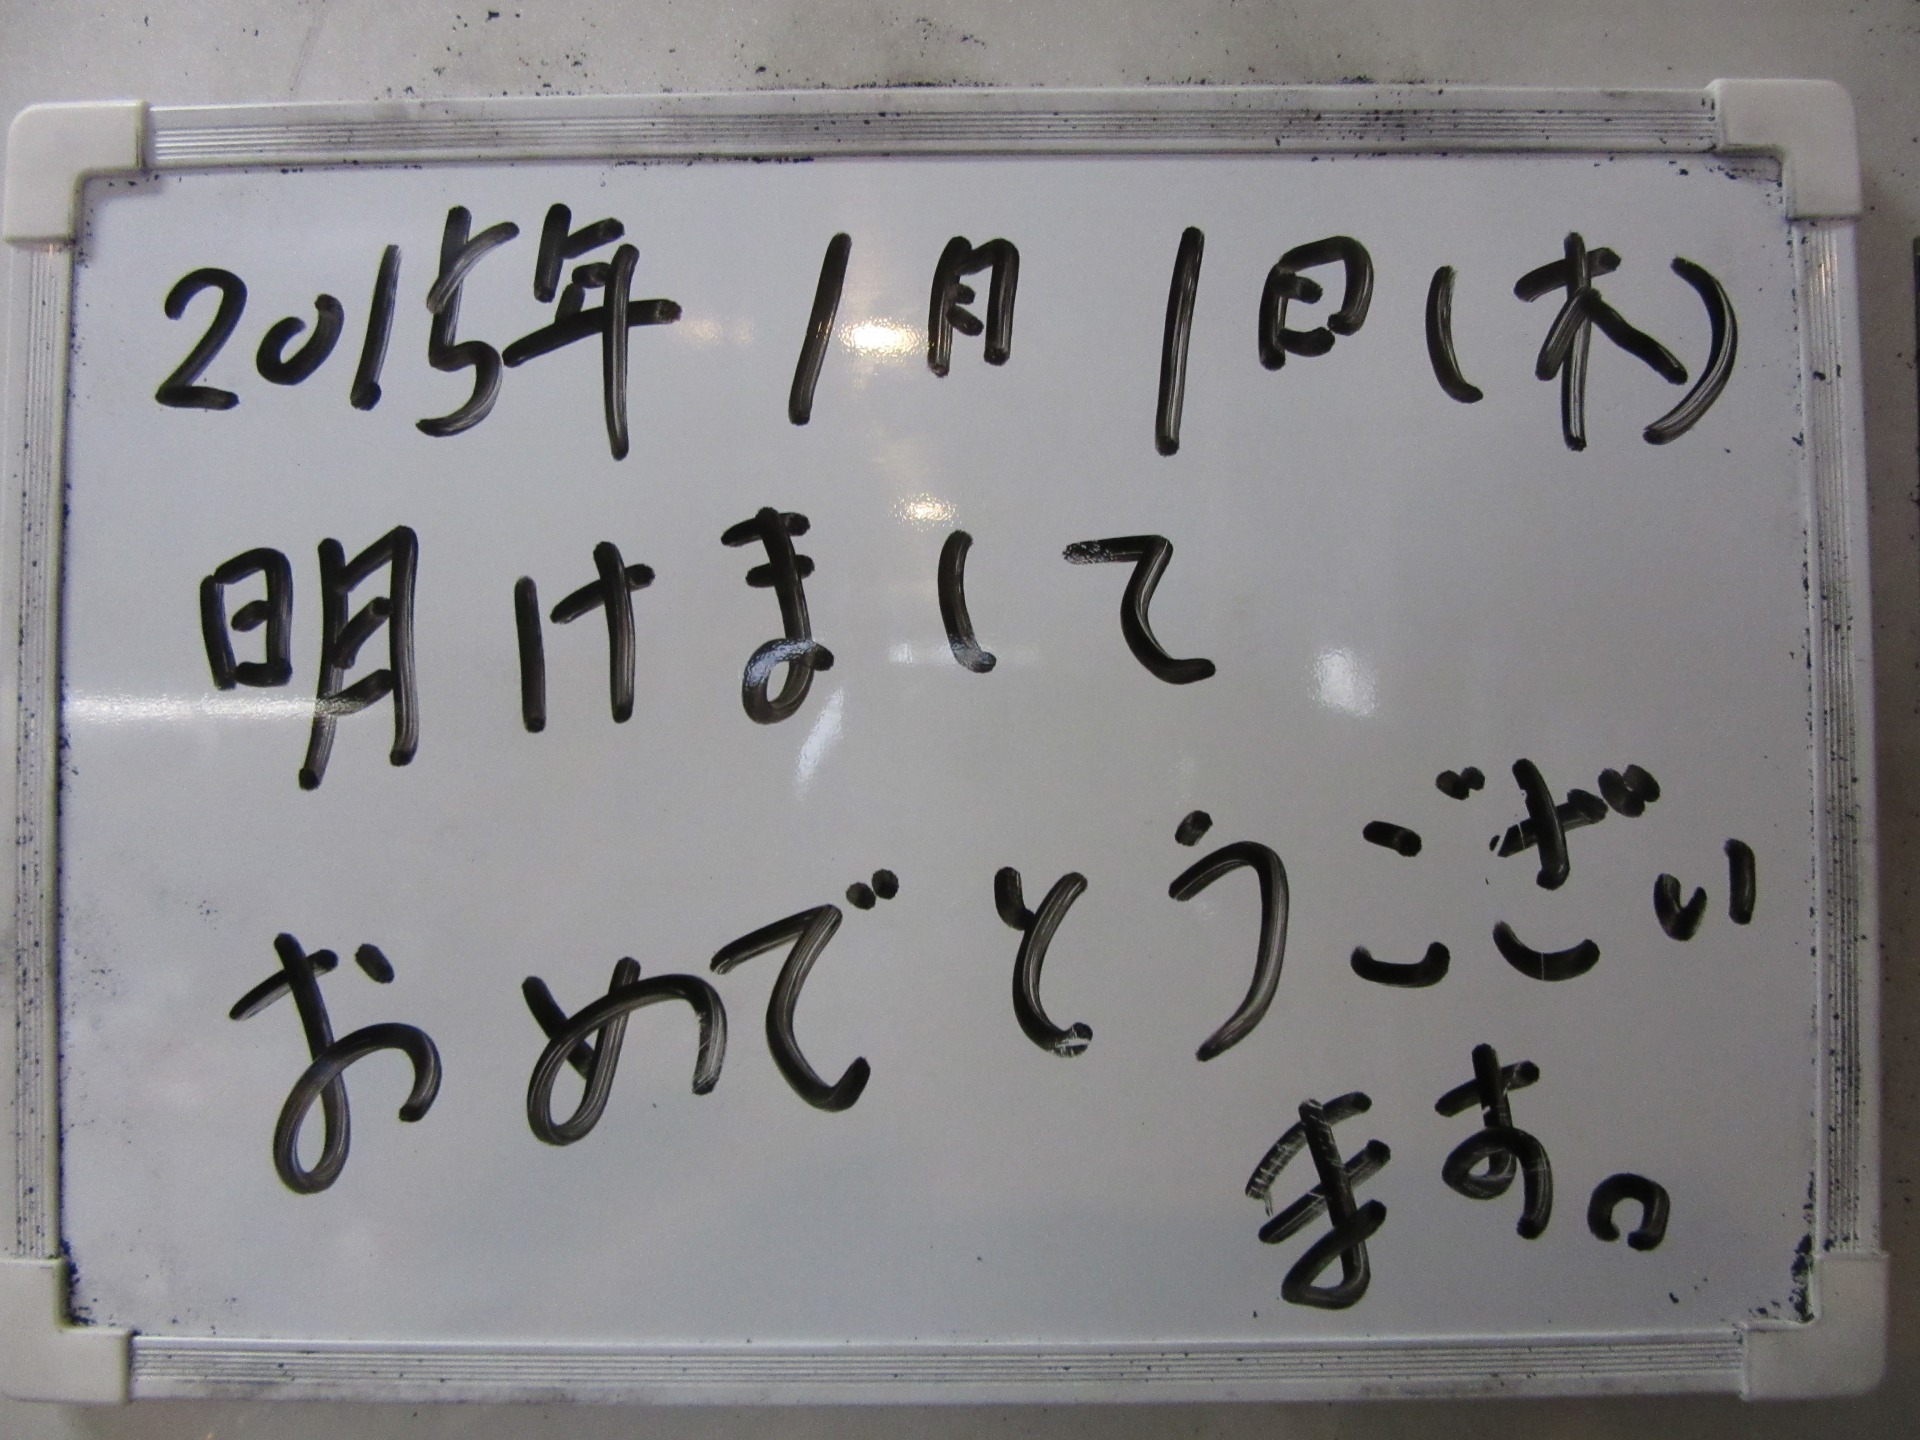 2015年 1月 1日(木)
明けまして
おめでとうござい
ます。